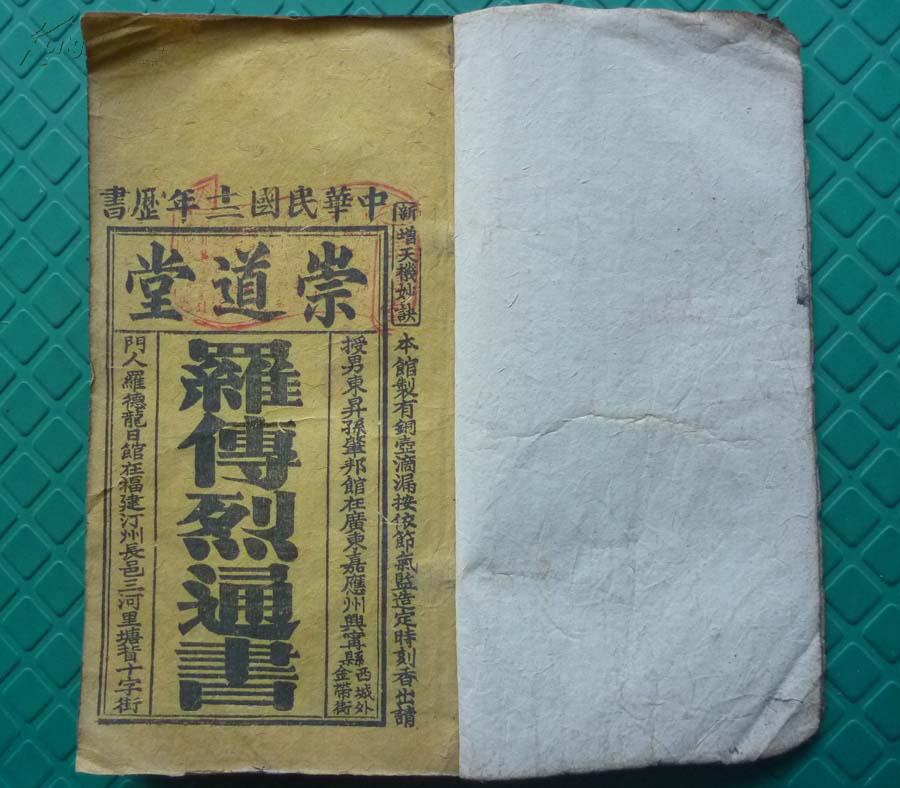 中華民國十二年歷書
新增天機妙訣
本館製有銅壺滴漏按依節氣監造定時刻香出請
崇道堂
授男東昇孫肇邦館在廣東嘉應州興寧縣
西城外
金帶街
羅傳烈通書
門人羅德龍日館在福建汀州長邑三河里塘背十字街